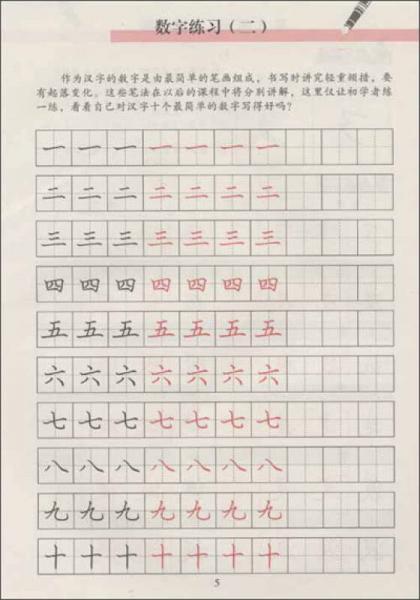 数字练习（二）
作为汉字的数字是由最简单的笔画组成，书写时讲究轻重频措，要
有起落变化。这些笔法在以后的课程中将分别讲解，这里仅让初学者练
一练，看看自己对汉字十个最简单的数字写得好吗？
一 一 一 一 一 一 一
二 二 二 二 二 二 二
三 三 三 三 三 三 三
四 四 四 四 四 四 四
五 五 五 五 五 五 五
六 六 六 六 六 六 六
七 七 七 七 七 七 七
八 八 八 八 八 八 八
九 九 九 九 九 九 九
十 十 十 十 十 十 十
5